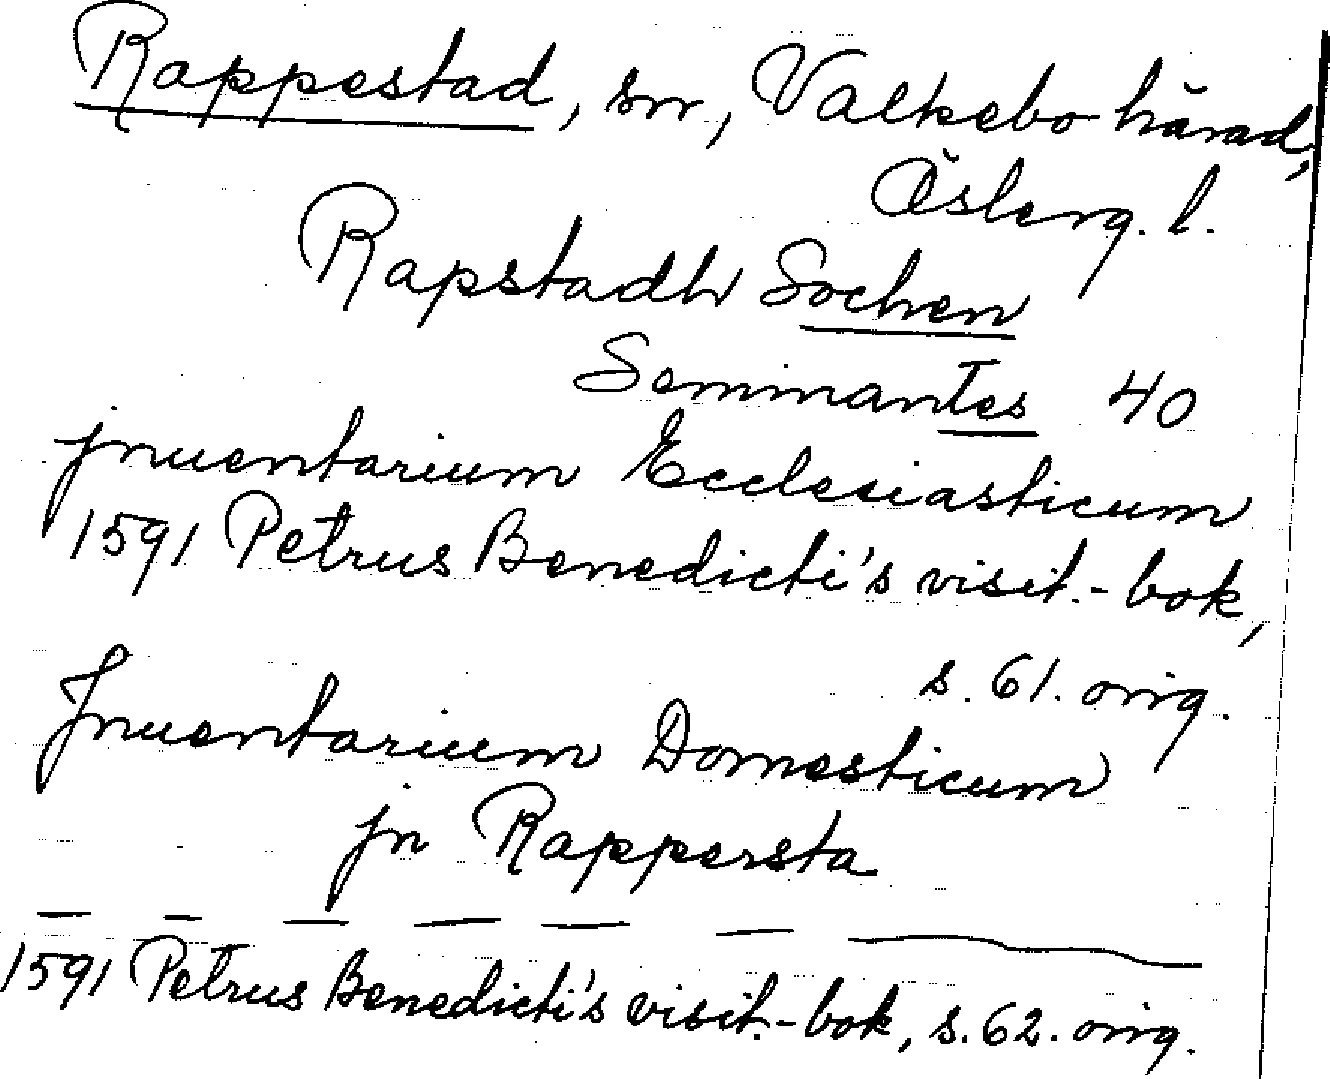 Rappestad, sn, Valkebo härad,
Österg. l.
Rapstadh Sochen
Seminantes 40
jnuentarium Ecclesiasticum
1591 Petrus Benedicti's visit.-bok,
s. 61. orig.
Jnuentarium Domesticum
jn Rappersta
— — — — — — —
1591 Petrus Benedicti's visit.-bok, s. 62. orig.